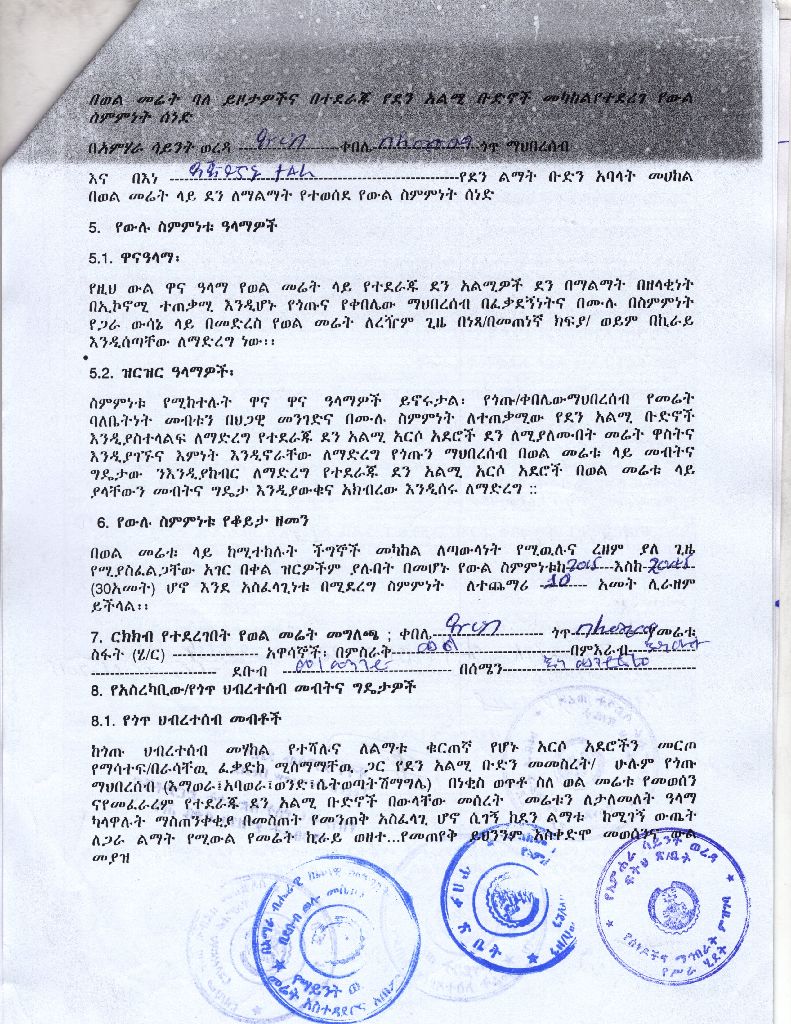 በወል መሬት ባለ ይዞታዎችና በተደራጁ የደን አልሚ ቡድኖች መካከልየተደረገ የውል
ስምምነት ሰነድ
በአምሃራ ሳይንት ወረዳ ቀበሌ ጎጥ ማህበረሰብ
እና በእነ የደን ልማት ቡድን አባላት መሀከል
በወል መሬት ላይ ደን ለማልማት የተወሰደ የውል ስምምነት ሰነድ
5. የውሉ ስምምነቱ ዓላማዎች
5.1. ዋናዓላማ፡
የዚህ ውል ዋና ዓላማ የወል መሬት ላይ የተደራጁ ደን አልሚዎች ደን በማልማት በዘላቂነት
በኢኮኖሚ ተጠቃሚ እንዲሆኑ የጎጡና የቀበሌው ማህበረሰብ በፈቃደኝነትና በሙሉ በስምምነት
የጋራ ውሳኔ ላይ በመድረስ የወል መሬት ለረዥም ጊዜ በነጻ/በመጠነኛ ክፍያ/ ወይም በኪራይ
እንዲሰጣቸው ለማድረግ ነው፡፡
5.2. ዝርዝር ዓላማዎች፡
ስምምነቱ የሚከተሉት ዋና ዋና ዓላማዎች ይኖሩታል፡ የጎጡ/ቀበሌውማህበረሰብ የመሬት
ባለቤትነት መብቱን በህጋዊ መንገድና በሙሉ ስምምነት ለተጠቃሚው የደን አልሚ ቡድኖች
እንዲያስተላልፍ ለማድረግ የተደራጁ ደን አልሚ አርሶ አደሮች ደን ለሚያለሙበት መሬት ዋስትና
እንዲያገኙና እምነት እንዲኖራቸው ለማድረግ የጎጡን ማህበረሰብ በወል መሬቱ ላይ መብትና
ግዴታው ንእንዲያከብር ለማድረግ የተደራጁ ደን አልሚ አርሶ አደሮች በወል መሬቱ ላይ
ያላቸውን መብትና ግዴታ እንዲያውቁና አክብረው እንዲሰሩ ለማድረግ ::
6. የውሉ ስምምነቱ የቆይታ ዘመን
በወል መሬቱ ላይ ከሚተከሉት ችግኞች መካከል ለጣውላነት የሚዉሉና ረዘም ያለ ጊዜ
የሚያስፈልጋቸው አገር በቀል ዝርዎችም ያሉበት በመሆኑ የውል ስምምነቱከ 2015 እስከ 2045
(30አመት) ሆኖ እንደ አስፈላጊነቱ በሚደረግ ስምምነት ለተጨማሪ 10 አመት ሊራዘም
ይችላል፡፡
7. ርክክብ የተደረገበት የወል መሬት መግለጫ ; ቀበሌ ጎጥ የመሬቱ
ስፋት (ሄ/ር) አዋሳኞች፡ በምስራቅ በምእራብ
ደቡብ በሰሜን
8. የአስረካቢው/የጎጥ ህብረተሰብ መብትና ግዴታዎች
8.1. የጎጥ ህብረተሰብ መብቶች
ከጎጡ ህብረተሰብ መሃከል የተሻሉና ለልማቱ ቁርጠኛ የሆኑ አርሶ አደሮችን መርጦ
የማሳተፍ/በራሳቸዉ ፈቃድከ ሚስማማቸዉ ጋር የደን አልሚ ቡድን መመስረት/ ሁሉም የጎጡ
ማህበረሰብ (እማወራ፤አባወራ፤ወንድ፤ሴትወጣት፤ሽማግሌ) በነቂስ ወጥቶ ስለ ወል መሬቱ የመወሰን
ናየመፈራረም የተደራጁ ደን አልሚ ቡድኖች በውላቸው መሰረት መሬቱን ለታለመለት ዓላማ
ካላዋሉት ማስጠንቀቂያ በመስጠት የመንጠቅ አስፈላጊ ሆኖ ሲገኝ ከደን ልማቱ ከሚገኝ ውጤት
ለጋራ ልማት የሚውል የመሬት ኪራይ ወዘተ...የመጠየቅ ይህንንም አስቀድሞ መወሰንና ውል
መያዝ
የአምሐራ ሳይንት ወረዳ
ፍትህ ጽ/ቤት
የሰነዶችና
የሥራ ሂደት
ጽ ቤት